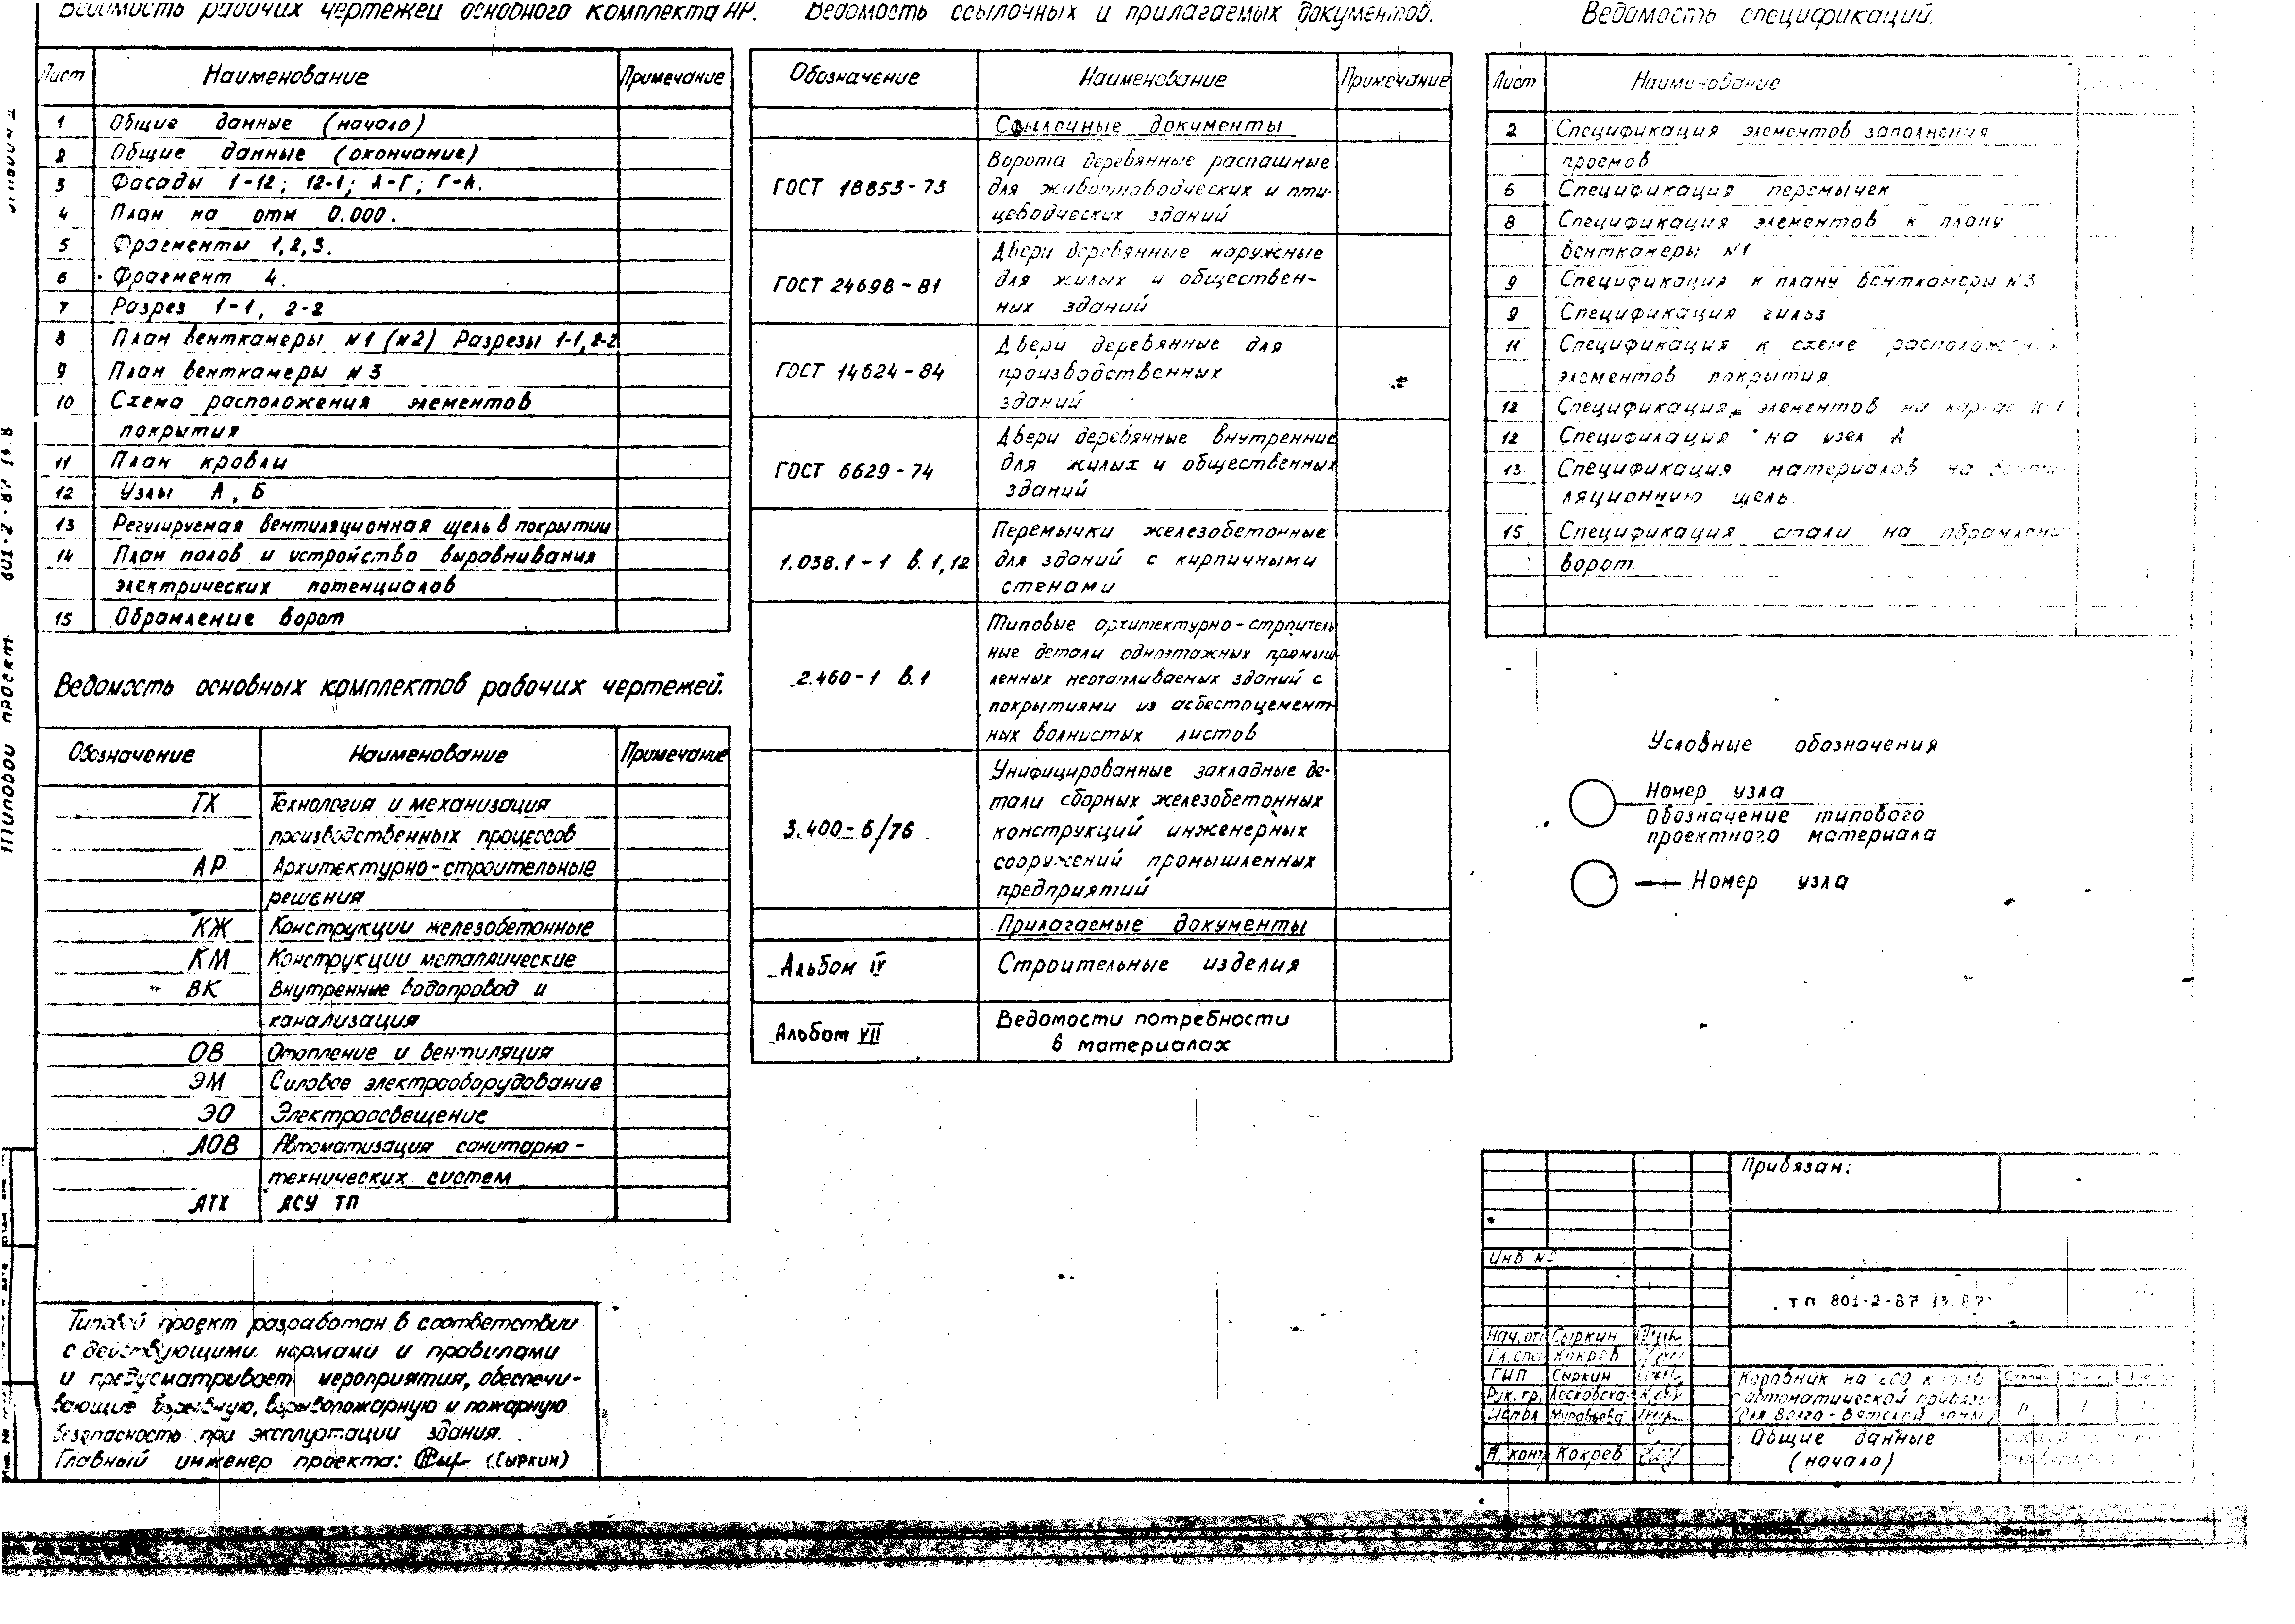 Ведомость рабочих чертежей основного комплекта АР.
Лист Наименование Примечание
1 Общие данные (начало)
2 Общие данные (окончание)
3 Фасады 1-12; 12-1; А-Г; Г-А.
4 План на отм 0.000.
5 Фрагменты 1,2,3.
6 Фрагмент 4.
7 Разрез 1-1, 2-2
8 План венткамеры №1 (№2) Разрезы 1-1, 2-2
9 План венткамеры №3
10 Схема расположения элементов
покрытия
11 План кровли
12 Узлы А, Б
13 Регулируемая вентиляционная щель в покрытии
14 План полов и устройство выравнивания
электрических потенциалов
15 Обрамление ворот
Ведомость основных комплектов рабочих чертежей.
Обозначение Наименование Примечание
ТХ Технология и механизация
производственных процессов
АР Архитектурно-строительные
решения
КЖ Конструкции железобетонные
КМ Конструкции металлические
ВК Внутренные водопровод и
канализация
ОВ Отопление и вентиляция
ЭМ Силовое электрооборудование
ЭО Электроосвещение
АОВ Автоматизация санитарно-
технических систем
АТХ АСУ ТП
Типовой проект разработан в соответствии
с действующими нормами и правилами
и предусматривает мероприятия, обеспечи-
вающие взрывную, взрывопожарную и пожарную
безопасность при эксплуатации здания.
Главный инженер проекта: (Сыркин)
Ведомость ссылочных и прилагаемых документов.
Обозначение Наименование Примечание
Ссылочные документы
ГОСТ 18853-73 Ворота деревянные распашные
для животноводческих и пти-
цеводческих зданий
ГОСТ 24698-81 Двери деревянные наружные
для жилых и обществен-
ных зданий
ГОСТ 14624-84 Двери деревянные для
производственных
зданий
ГОСТ 6629-74 Двери деревянные внутренние
для жилых и общественных
зданий
1.038.1-1 в.1,12 Перемычки железобетонные
для зданий с кирпичными
стенами
2.460-1 в.1 Типовые архитектурно-строитель
ные детали одноэтажных промыш-
ленных неотапливаемых зданий с
покрытиями из асбестоцемент-
ных волнистых листов
3.400-6/76 Унифицированные закладные де-
тали сборных железобетонных
конструкций инженерных
сооружений промышленных
предприятий
Прилагаемые документы
Альбом IV Строительные изделия
Альбом VII Ведомости потребности
в материалах
Ведомость спецификаций.
Лист Наименование
2 Спецификация элементов заполнения
проемов
6 Спецификация перемычек
8 Спецификация элементов к плану
венткамеры №1
9 Спецификация к плану венткамеры №3
9 Спецификация гильз
11 Спецификация к схеме расположения
элементов покрытия
12 Спецификация элементов на каркас К-1
12 Спецификация на узел А
13 Спецификация материалов на венти-
ляционную щель.
15 Спецификация стали на обрамление
ворот.
Условные обозначения
Номер узла
Обозначение типового
проектного материала
Номер узла
Привязан:
Инв №
ТП 801-2-87 13.87
Нач. отд Сыркин
Гл. спец Кокрев
ГИП Сыркин
Рук. гр.
Испол Муравьева
Н. конт Кокрев
Коровник на 200 коров
автоматической привязи
для Волго-Вятской зоны
Р 1
Общие данные
(начало)
Типовой проект 801-2-87 13.8
Формат